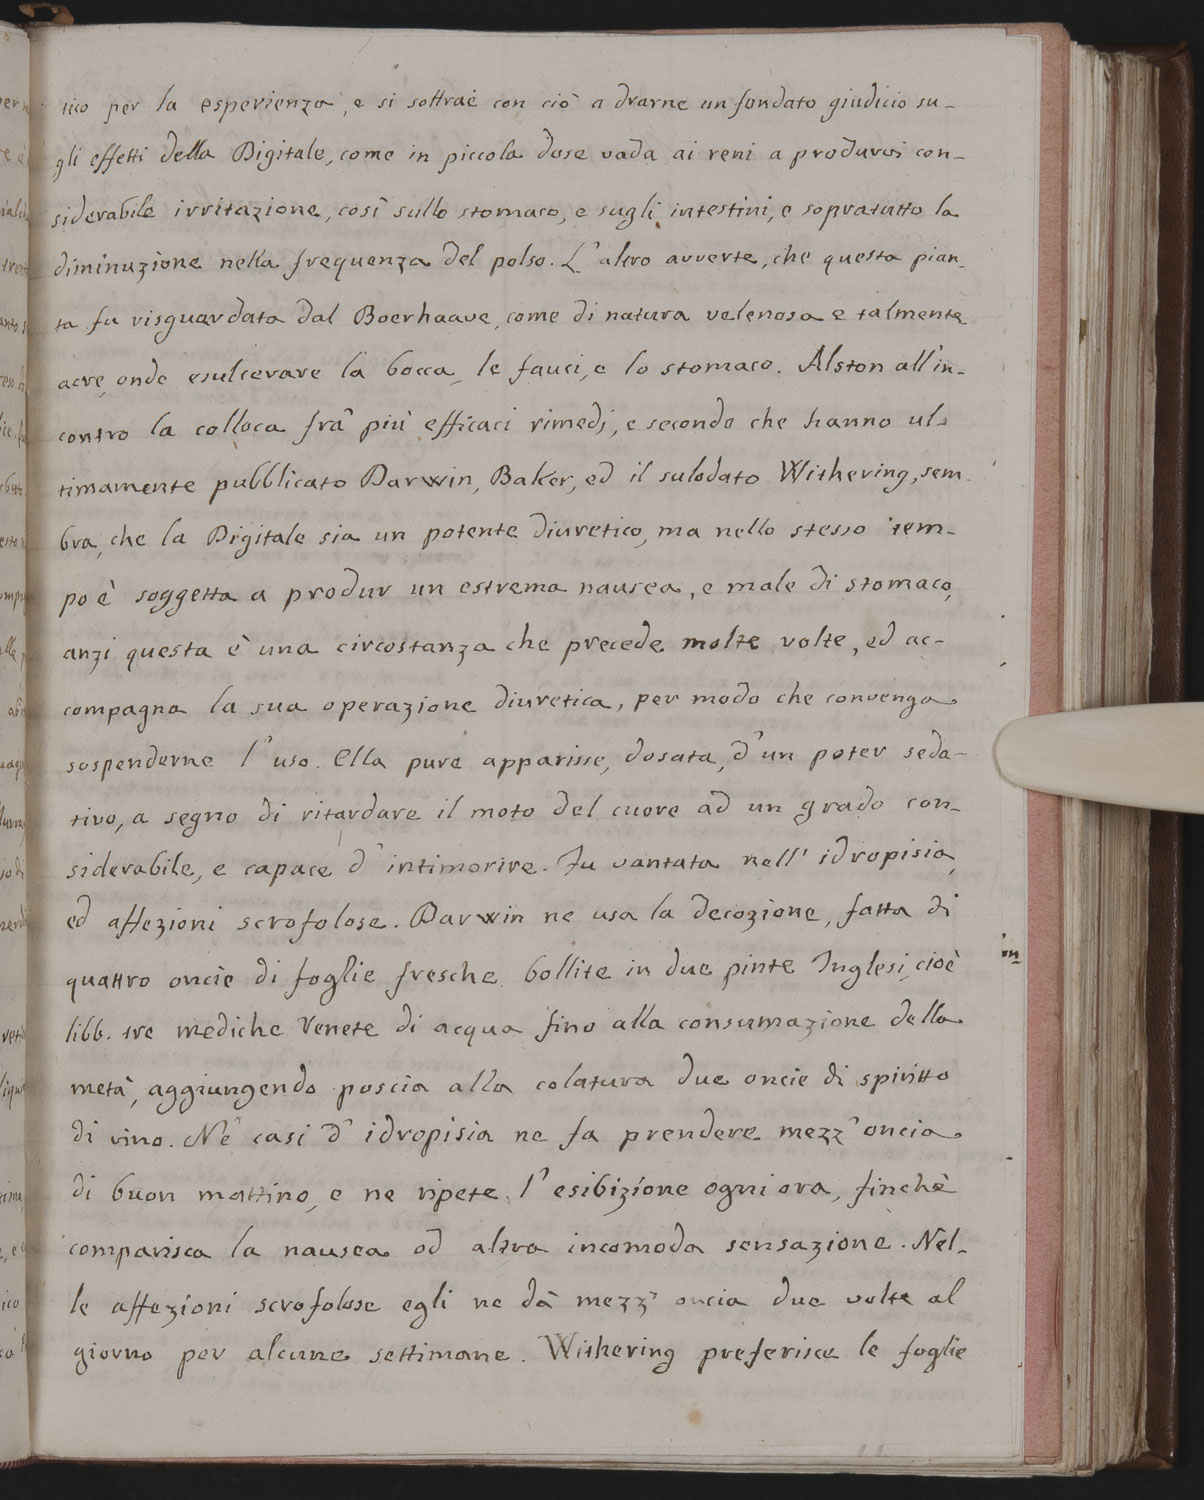 tico per la esperienza, e si sottrae con ciò a drarne un fondato giudicio su-
gli effetti della Digitale, come in piccola dose vada ai reni a produrvi con-
siderabile irritazione, così sullo stomaco, e sugli intestini, e sopratutto la
diminuzione nella frequenza del polso. L'altro avverte, che questa pian-
ta fu risguardata dal Boerhaave, come di natura velenosa e talmente
acre, onde esulcerare la bocca, le fauci, e lo stomaco. Alston all'in-
contro la colloca frà più efficaci rimedj, e secondo che hanno ul-
timamente pubblicato Darwin, Baker, ed il sulodato Withering, sem-
bra, che la Digitale sia un potente diuretico, ma nello stesso tem-
po è soggetta a produr un estrema nausea, e male di stomaco,
anzi questa è una circostanza che precede molte volte, ed ac-
compagna la sua operazione diuretica, per modo che convenga
sospenderne l'uso. Ella pure apparisse, dosata, d'un poter seda-
tivo, a segno di ritardare il moto del cuore ad un grado con-
siderabile, e capace d'intimorire. Fu vantata nell'idropisia,
ed affezioni scrofolose. Darwin ne usa la decozione, fatta di
quattro oncie di foglie fresche bollite in due pinte Inglesi, cioè in
libb. tre mediche Venete di acqua fino alla consumazione della
metà, aggiungendo poscia alla colatura due oncie di spiritto
di vino. Ne' casi d'idropisia ne fa prendere mezz'oncia
di buon mattino, e ne ripete l'esibizione ogni ora, finchè
comparisca la nausea od altra incomoda sensazione. Nel-
le affezioni scrofolose egli ne dà mezz'oncia due volte al
giorno per alcune settimane. Withering preferisce le foglie